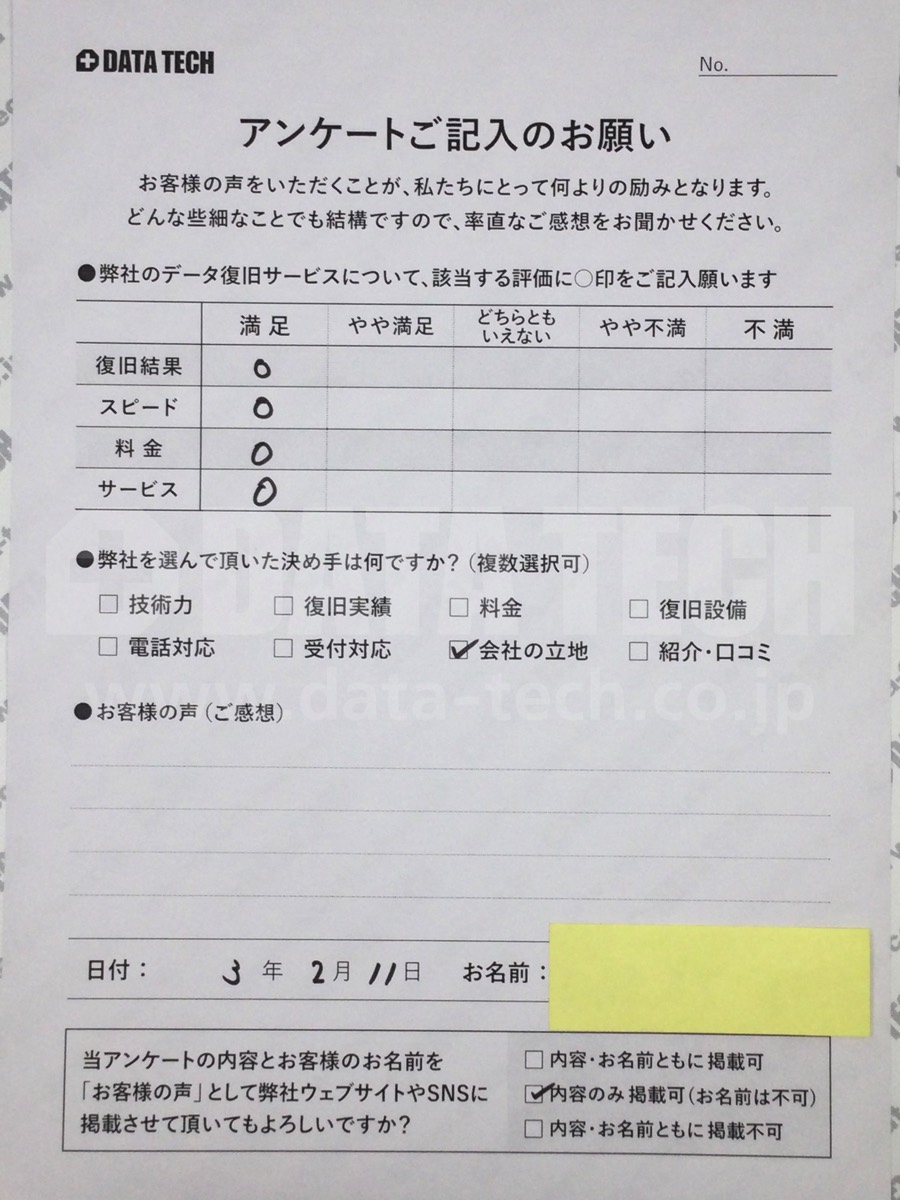 DATA TECH
No.
アンケートご記入のお願い
お客様の声をいただくことが、私たちにとって何よりの励みとなります。
どんな些細なことでも結構ですので、率直なご感想をお聞かせください。
●弊社のデータ復旧サービスについて、該当する評価に○印をご記入願います
満足 やや満足 どちらとも いえない やや不満 不満
復旧結果 ○
スピード ○
料金 ○
サービス ○
DATA TECH
●弊社を選んで頂いた決め手は何ですか?(複数選択可)
□ 技術力 □ 復旧実績 □ 料金 □ 復旧設備
□ 電話対応 □ 受付対応 ☑ 会社の立地 □ 紹介・口コミ
www.data-tech.co.jp
●お客様の声(ご感想)
日付: 3年 2月 11日 お名前:
当アンケートの内容とお客様のお名前を
「お客様の声」として弊社ウェブサイトやSNSに
掲載させて頂いてもよろしいですか?
□ 内容・お名前ともに掲載可
☑ 内容のみ掲載可(お名前は不可)
□ 内容・お名前ともに掲載不可